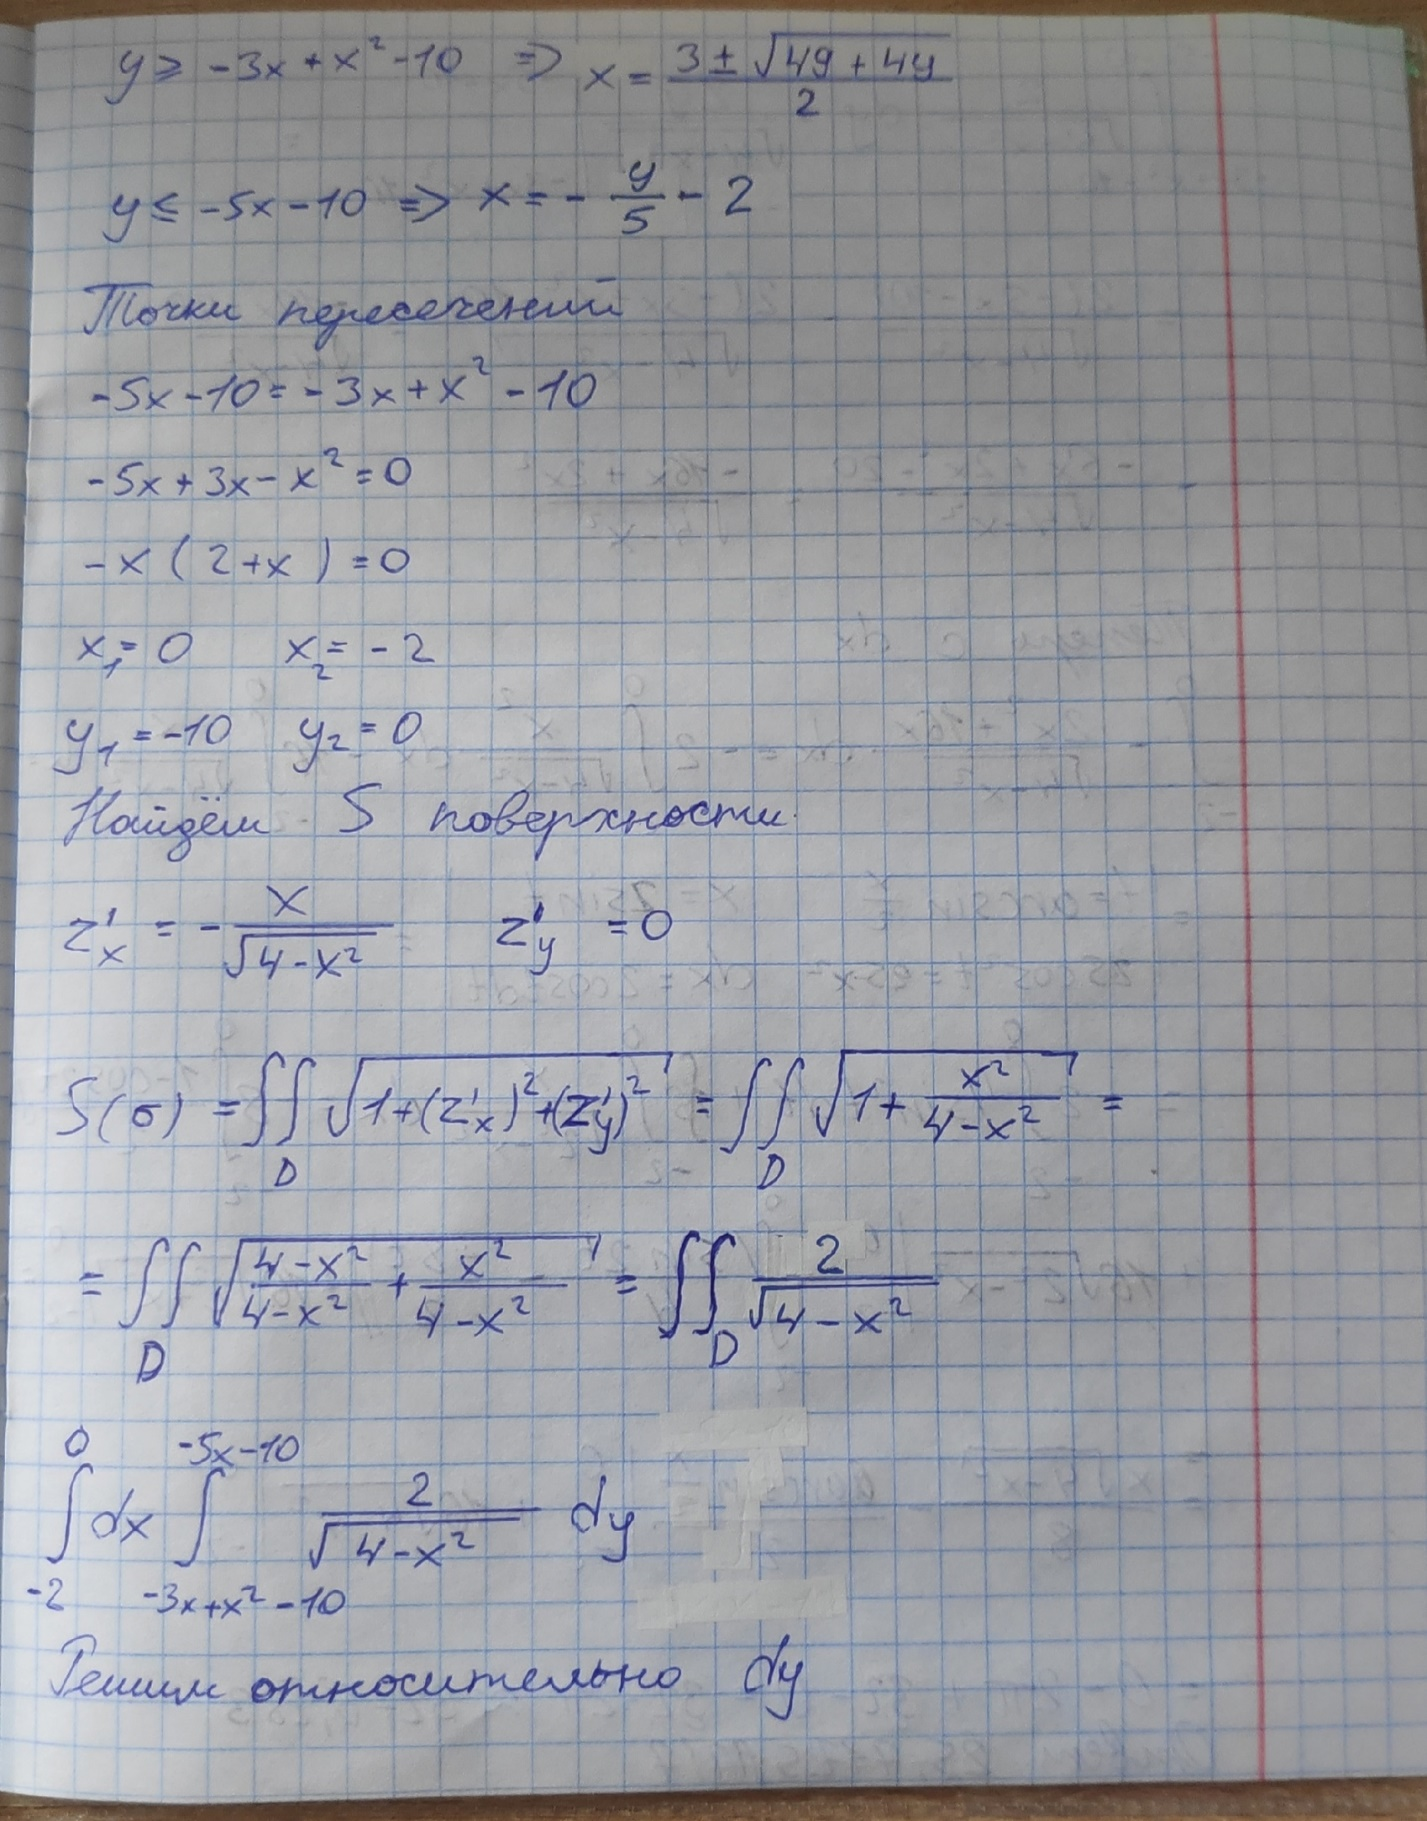 y ≥ -3x + x² - 10 => x = (3 ± √(49 + 4y))/2
y ≤ -5x - 10 => x = - y/5 - 2
Точки пересечений
-5x - 10 = -3x + x² - 10
-5x + 3x - x² = 0
-x (2 + x) = 0
x₁ = 0 x₂ = -2
y₁ = -10 y₂ = 0
Найдём S поверхности
z'ₓ = - x/√(4-x²) z'_y = 0
S(σ) = ∬_D √(1 + (z'ₓ)² + (z'_y)²) = ∬_D √(1 + x²/(4-x²)) =
= ∬_D √((4-x²)/(4-x²) + x²/(4-x²)) = ∬_D 2/√(4-x²)
∫_{-2}^{0} dx ∫_{-3x+x²-10}^{-5x-10} 2/√(4-x²) dy
Решим относительно dy